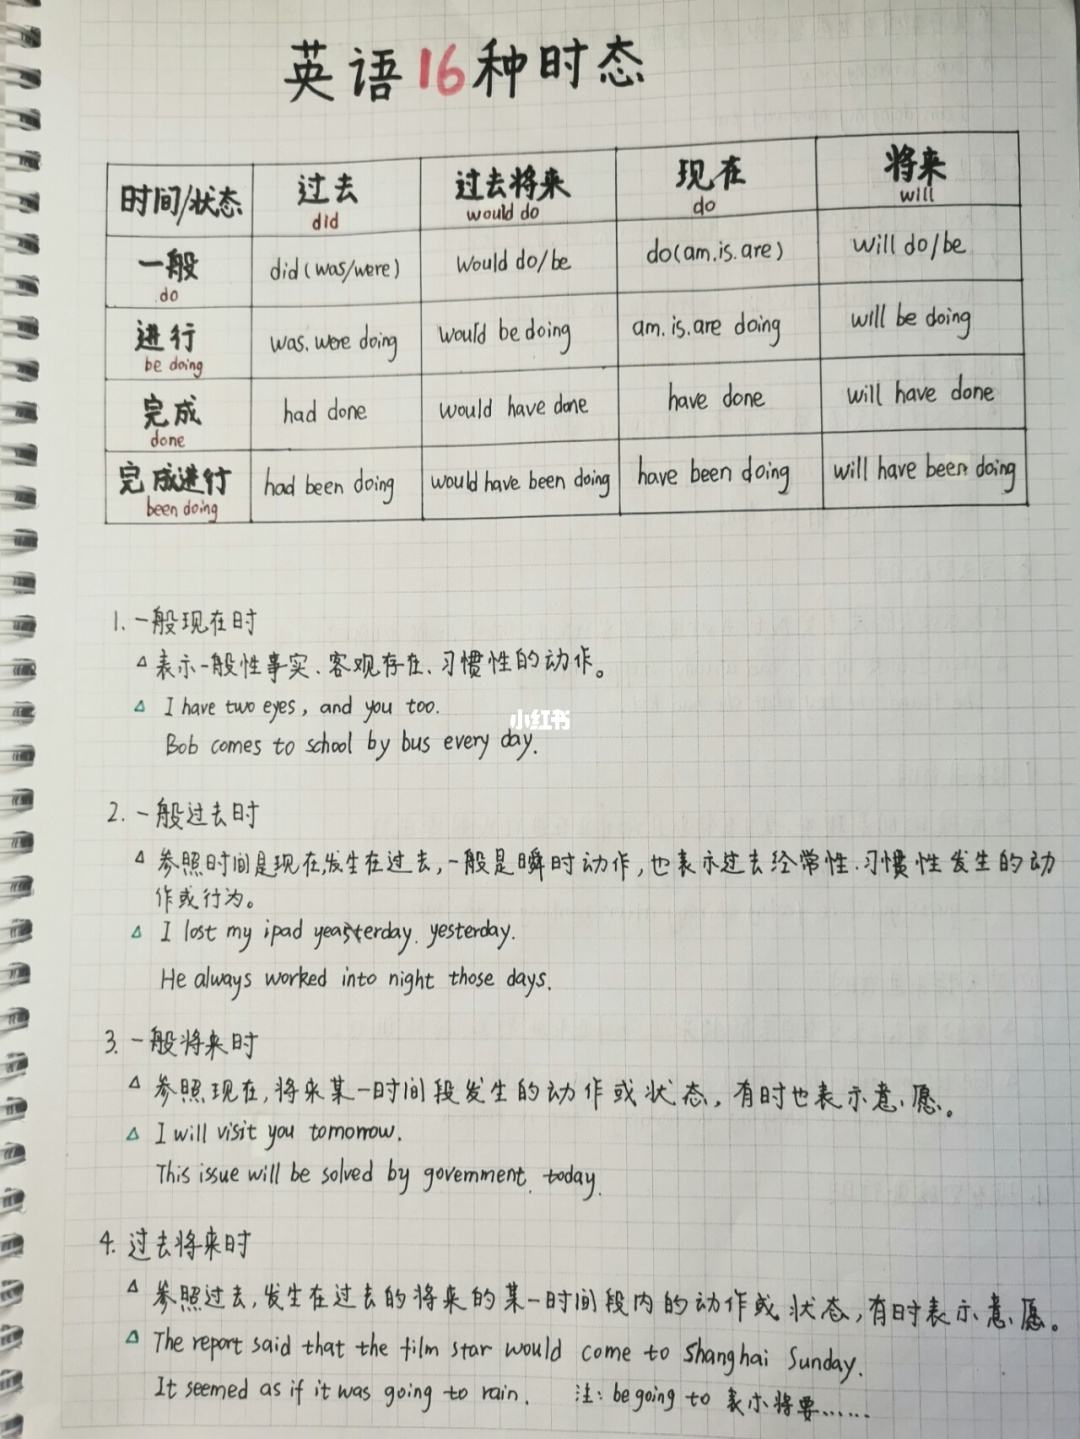 英语16种时态
时间/状态 过去 过去将来 现在 将来
did would do do will
一般 did(was/were) would do/be do(am.is.are) will do/be
do
进行 was.were doing would be doing am.is.are doing will be doing
be doing
完成 had done would have done have done will have done
done
完成进行 had been doing would have been doing have been doing will have been doing
been doing
1. 一般现在时
△ 表示一般性事实、客观存在、习惯性的动作。
△ I have two eyes, and you too.
小红书
Bob comes to school by bus every day.
2. 一般过去时
△ 参照时间是现在,发生在过去,一般是瞬时动作,也表示过去经常性.习惯性发生的动
作或行为。
△ I lost my ipad yeasterday. yesterday.
He always worked into night those days.
3. 一般将来时
△ 参照现在,将来某一时间段发生的动作或状态,有时也表示意愿。
△ I will visit you tomorrow.
This issue will be solved by government today.
4. 过去将来时
△ 参照过去,发生在过去的将来的某一时间段内的动作或状态,有时表示意愿。
△ The report said that the film star would come to Shanghai Sunday.
It seemed as if it was going to rain. 注: be going to 表示将要……